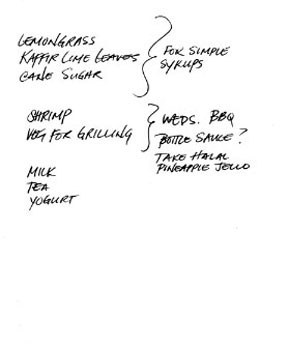 LEMONGRASS
KAFFIR LIME LEAVES
CANE SUGAR
FOR SIMPLE
SYRUPS
SHRIMP
VEG FOR GRILLING
WEDS. BBQ
BOTTLE SAUCE?
TAKE HALAL
PINEAPPLE JELLO
MILK
TEA
YOGURT